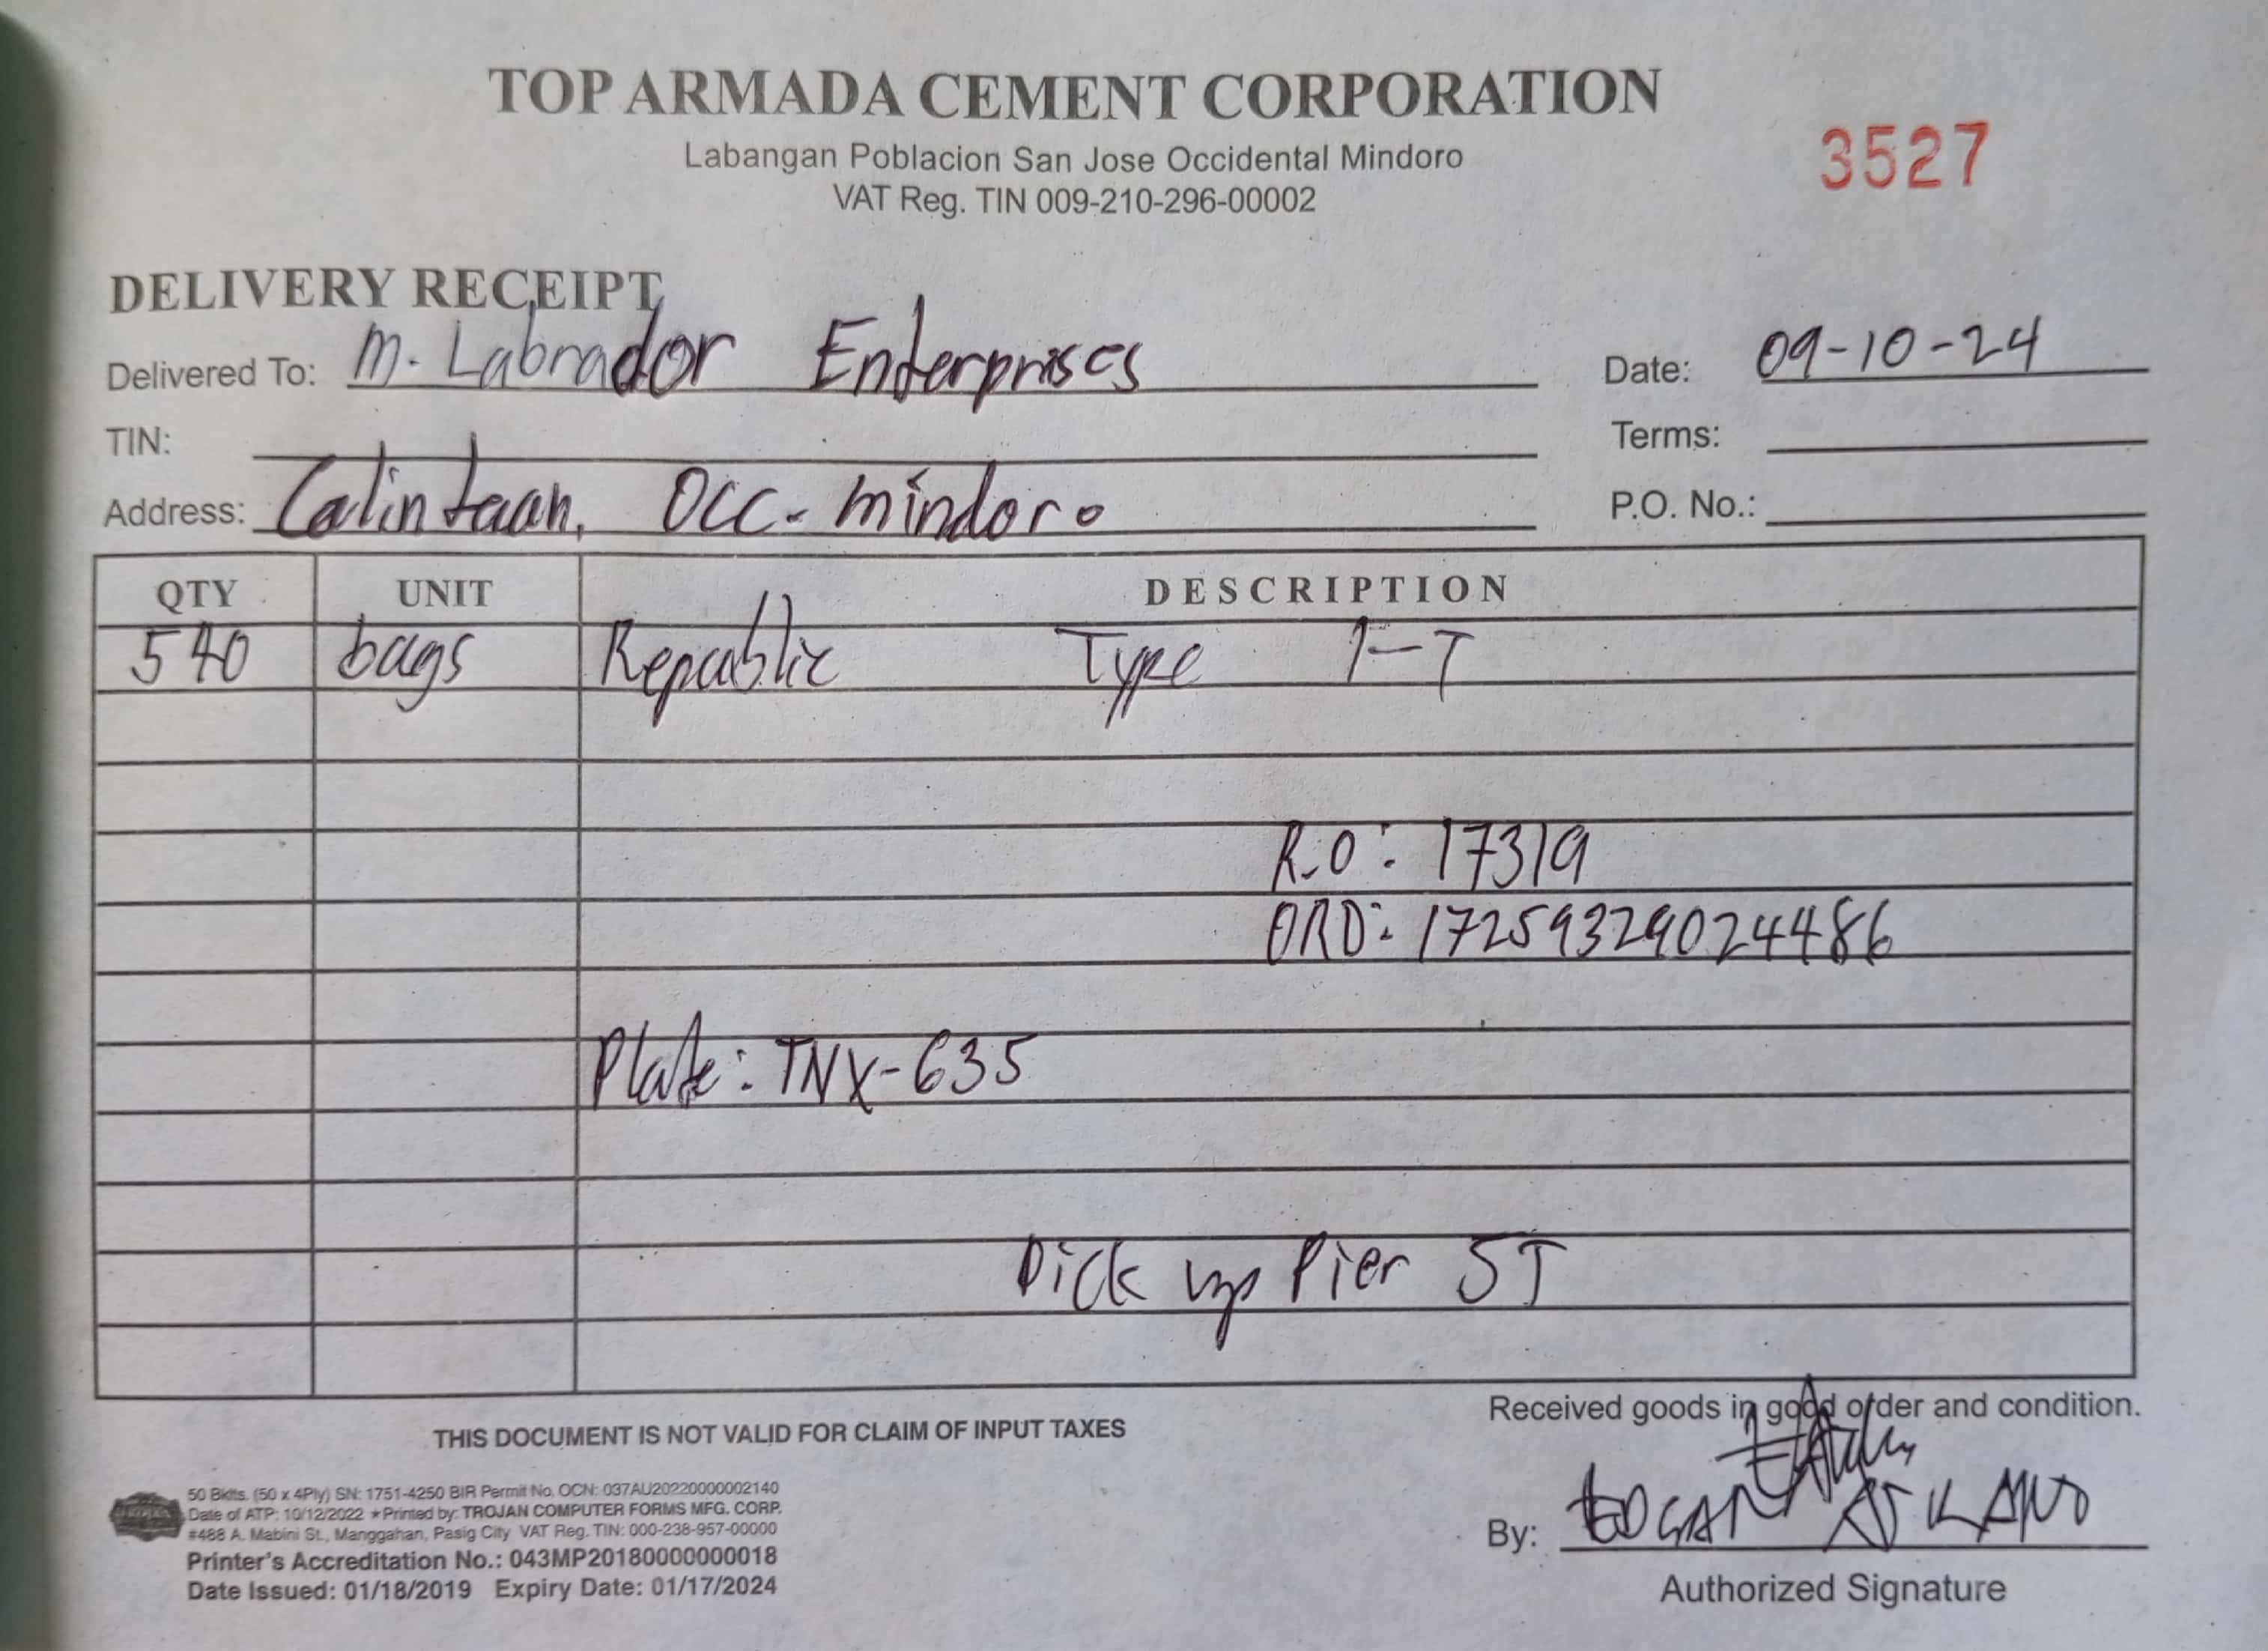 TOP ARMADA CEMENT CORPORATION
Labangan Poblacion San Jose Occidental Mindoro
VAT Reg. TIN 009-210-296-00002
3527
DELIVERY RECEIPT
Delivered To: M. Labrador Enterprises
Date: 09-10-24
TIN:
Terms:
Address: Calintaan, Occ. Mindoro
P.O. No.:
QTY UNIT DESCRIPTION
540 bags Republic Type 1-T
R.O: 17319
ORD: 17259329024486
Plate: TNX-635
Pick up Pier SJ
THIS DOCUMENT IS NOT VALID FOR CLAIM OF INPUT TAXES
Received goods in good order and condition.
50 Bklts. (50 x 4Ply) SN: 1751-4250 BIR Permit No. OCN: 037AU20220000002140
Date of ATP: 10/12/2022 ★Printed by: TROJAN COMPUTER FORMS MFG. CORP.
#488 A. Mabini St., Manggahan, Pasig City VAT Reg. TIN: 000-238-957-00000
Printer's Accreditation No.: 043MP20180000000018
Date Issued: 01/18/2019 Expiry Date: 01/17/2024
By: EDGAR
Authorized Signature